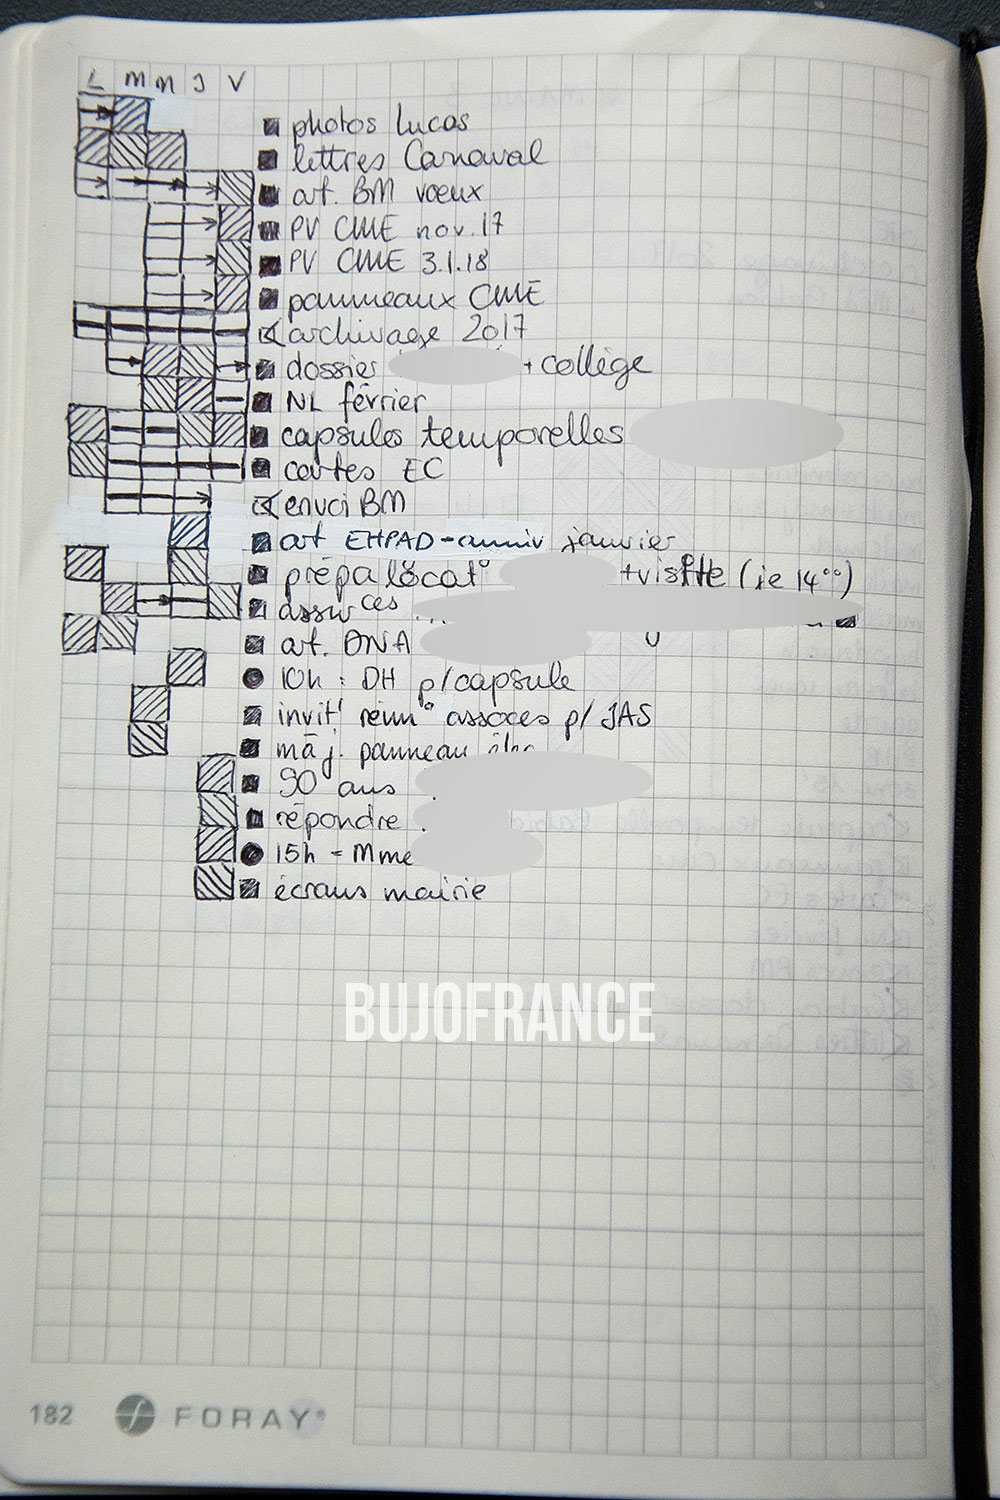 L M M J V
photos Lucas
lettres Carnaval
art. BM vœux
PV CME nov. 17
PV CME 3.1.18
panneaux CME
archivage 2017
dossier + collège
NL février
capsules temporelles
cartes EC
envoi BM
art EHPAD - anniv janvier
prépa locat° + visite (je 14°°)
assoces ...
art. DNA
10h : DH p/capsule
invit° réun° assoces p/ JAS
màj. panneau
90 ans
répondre
15h - Mme
écrans mairie
BUJOFRANCE
182 FORAY